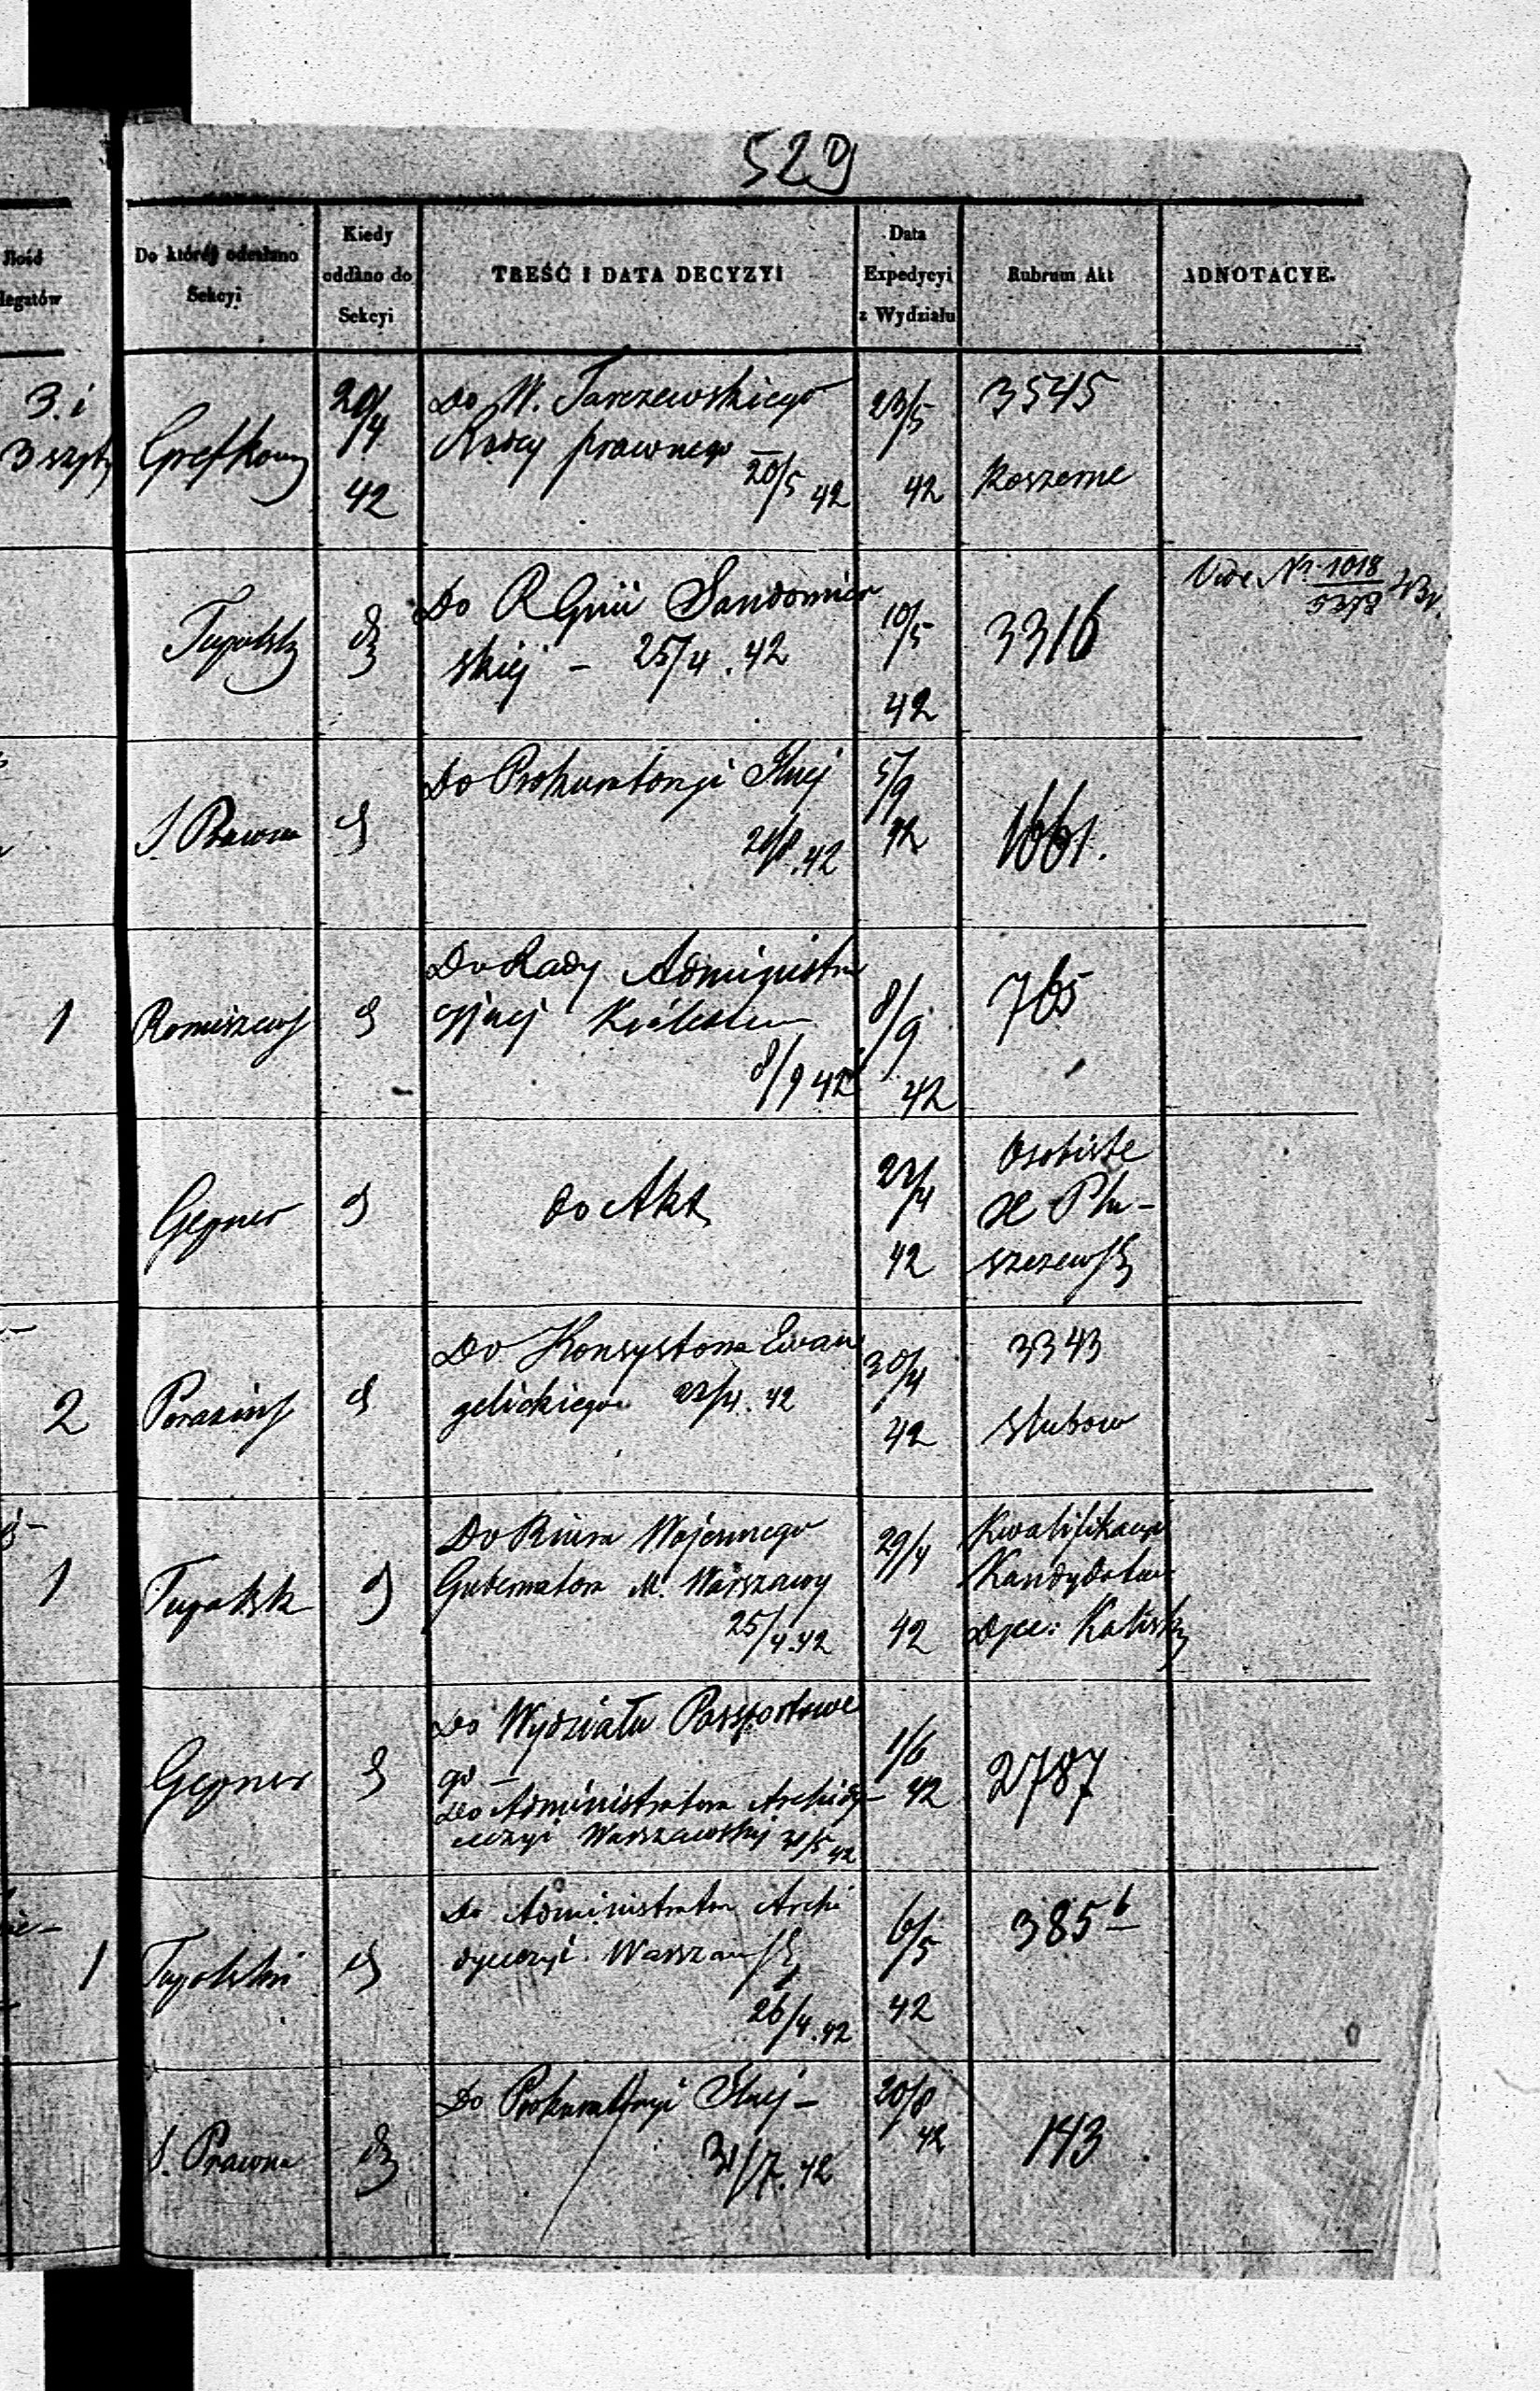 529
Ilość
legatów
Do której odesłano
Sekcyi
Kiedy
oddano do
Sekcyi
TREŚĆ I DATA DECYZYI
Data
Expedycyi
z Wydziału
Rubrum Akt
ADNOTACYE.
3. i
3 szyty
20/4
42
Do W. Tarczewskiego
Radcy prawnego
20/5 42
23/5
42
3545
Koszerne
Tupalsk
Do R Gnii Sandomier
skiej – 25/4. 42
10/5
42
3316
Vide Nr 1018
5378
S. Prawna
Do Prokuratoryi
42
5/9
42
1661.
1
Romiszews
Do Rady Administra
cyjnej Królestwa
8/9 42
8/9
42
765
Gepner
do Akt
42
Osobiste
X Plu-
szczewsk
2
Porazins
Do Konsystorza Ewan
gelickiego 22/4. 42
30/4
42
3343
Slubow
1
Tupalsk
Do Biura Wojennego
Gubernatora M. Warszawy
25/4.42
29/4
42
Kwalifikacye
Kandydatow
Dyec: Kalisk
Gepner
Do Wydziału Passportowe
go –
Do Administratora Archidy-
ecezyi Warszawskiej 31/5 42
1/6
42
2787
1
Tupalski
Do Administratora Archi
dyecezyi Warszaws
26/4.42
6/5
42
385 b
S. Prawna
Do Prokuratoryi
31/7. 42
20/8
42
143